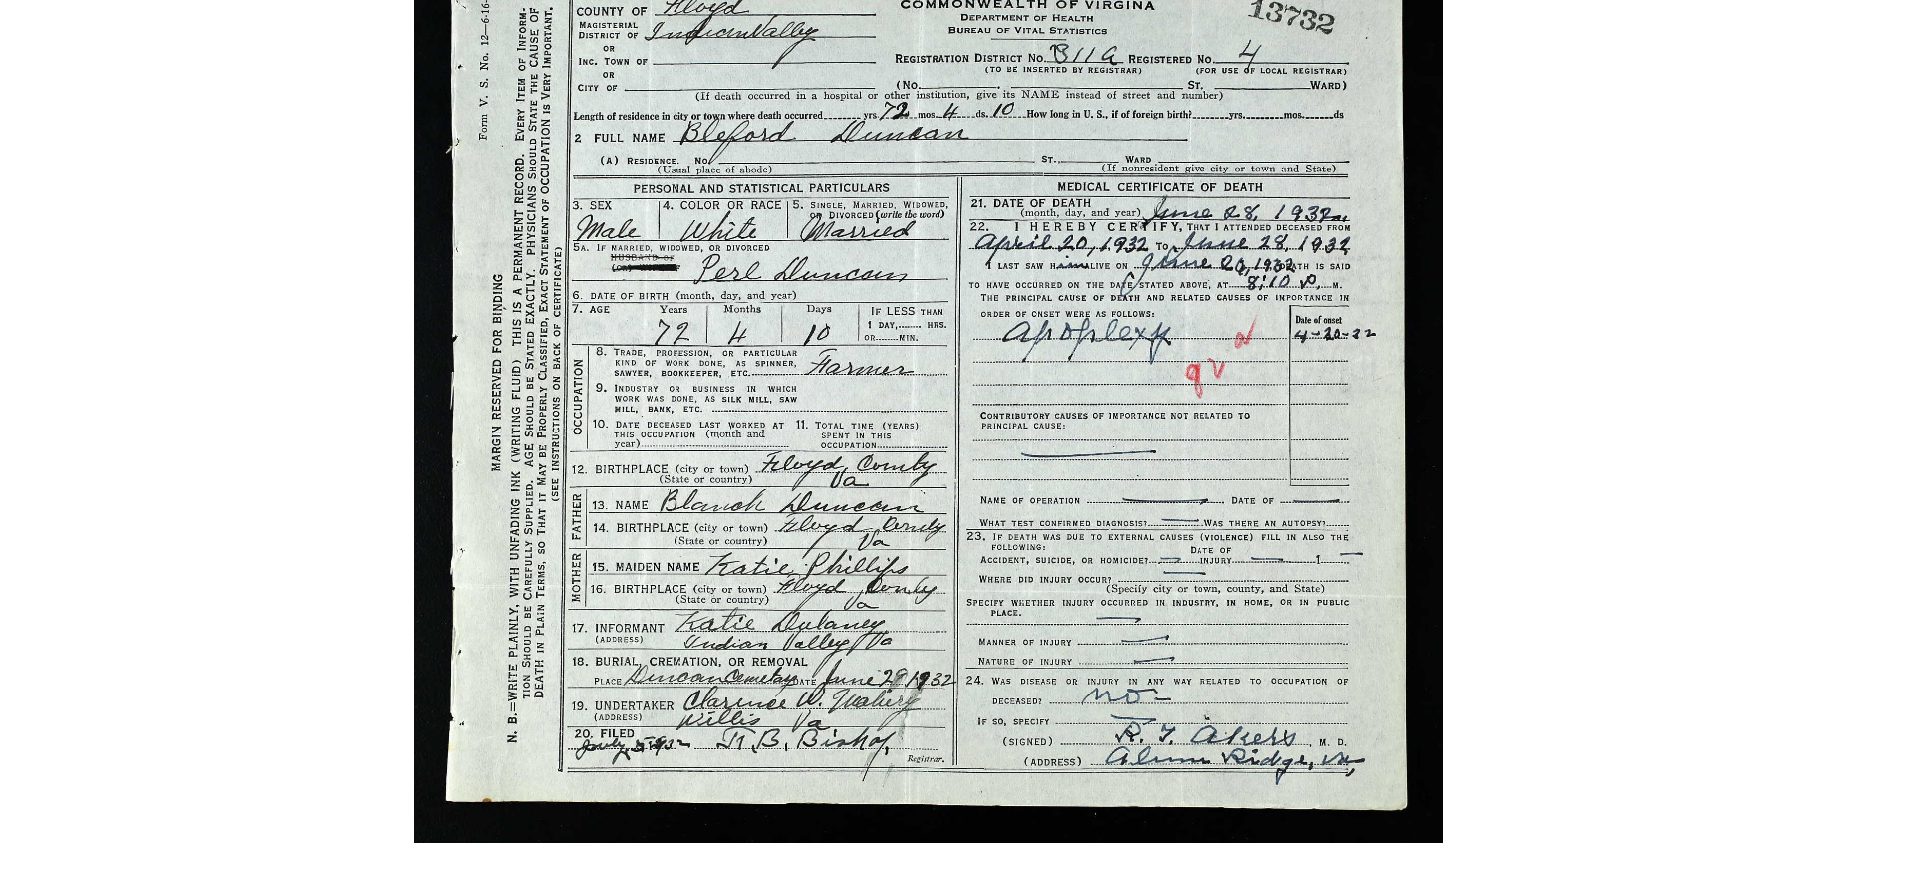 Form V. S. No. 12—6-16-
MARGIN RESERVED FOR BINDING
N. B.—WRITE PLAINLY, WITH UNFADING INK (WRITING FLUID) THIS IS A PERMANENT RECORD. EVERY ITEM OF INFORM-
TION SHOULD BE CAREFULLY SUPPLIED. AGE SHOULD BE STATED EXACTLY. PHYSICIANS SHOULD STATE THE CAUSE OF
DEATH IN PLAIN TERMS, SO THAT IT MAY BE PROPERLY CLASSIFIED, EXACT STATEMENT OF OCCUPATION IS VERY IMPORTANT.
(SEE INSTRUCTIONS ON BACK OF CERTIFICATE)
COUNTY OF Floyd
COMMONWEALTH OF VIRGINIA
13732
MAGISTERIAL
DISTRICT OF Indian Valley
DEPARTMENT OF HEALTH
BUREAU OF VITAL STATISTICS
OR
INC. TOWN OF
REGISTRATION DISTRICT NO. 311A REGISTERED NO. 4
(TO BE INSERTED BY REGISTRAR) (FOR USE OF LOCAL REGISTRAR)
OR
CITY OF (No. ST. WARD)
(If death occurred in a hospital or other institution, give its NAME instead of street and number)
Length of residence in city or town where death occurred yrs. 72 mos. 4 ds. 10 How long in U. S., if of foreign birth? yrs. mos. ds
2 FULL NAME Bleford Duncan
(A) RESIDENCE. No ST. WARD
(Usual place of abode) (If nonresident give city or town and State)
PERSONAL AND STATISTICAL PARTICULARS
3. SEX 4. COLOR OR RACE 5. SINGLE, MARRIED, WIDOWED,
OR DIVORCED (write the word)
Male White Married
5A. IF MARRIED, WIDOWED, OR DIVORCED
HUSBAND OF
(OR) WIFE OF Perl Duncan
6. DATE OF BIRTH (month, day, and year)
7. AGE Years Months Days IF LESS THAN
1 DAY, HRS.
72 4 10 OR MIN.
OCCUPATION
8. TRADE, PROFESSION, OR PARTICULAR
KIND OF WORK DONE, AS SPINNER,
SAWYER, BOOKKEEPER, ETC. Farmer
9. INDUSTRY OR BUSINESS IN WHICH
WORK WAS DONE, AS SILK MILL, SAW
MILL, BANK, ETC.
10. DATE DECEASED LAST WORKED AT 11. TOTAL TIME (YEARS)
THIS OCCUPATION (month and SPENT IN THIS
year) OCCUPATION
12. BIRTHPLACE (city or town) Floyd County
(State or country) Va
FATHER
13. NAME Duncan
14. BIRTHPLACE (city or town) Floyd County
(State or country) Va
MOTHER
15. MAIDEN NAME Katie Phillips
16. BIRTHPLACE (city or town) Floyd County
(State or country) Va
17. INFORMANT Katie Dulaney
(ADDRESS) Indian Valley Va
18. BURIAL, CREMATION, OR REMOVAL
PLACE Duncan Cemetary DATE June 29 1932
19. UNDERTAKER Clarence W.
(ADDRESS) Willis Va
20. FILED
July 5 1932 B, Bishop,
Registrar.
MEDICAL CERTIFICATE OF DEATH
21. DATE OF DEATH
(month, day, and year) June 28, 1932
22. I HEREBY CERTIFY, THAT I ATTENDED DECEASED FROM
April 20, 1932 TO June 28, 1932
I LAST SAW H im ALIVE ON June 20, 1932 DEATH IS SAID
TO HAVE OCCURRED ON THE DATE STATED ABOVE, AT 8:10 P. M.
THE PRINCIPAL CAUSE OF DEATH AND RELATED CAUSES OF IMPORTANCE IN
ORDER OF ONSET WERE AS FOLLOWS: Date of onset
Apoplexy 4-20-32
CONTRIBUTORY CAUSES OF IMPORTANCE NOT RELATED TO
PRINCIPAL CAUSE:
NAME OF OPERATION DATE OF
WHAT TEST CONFIRMED DIAGNOSIS? WAS THERE AN AUTOPSY?
23. IF DEATH WAS DUE TO EXTERNAL CAUSES (VIOLENCE) FILL IN ALSO THE
FOLLOWING:
DATE OF
ACCIDENT, SUICIDE, OR HOMICIDE? INJURY 1
WHERE DID INJURY OCCUR?
(Specify city or town, county, and State)
SPECIFY WHETHER INJURY OCCURRED IN INDUSTRY, IN HOME, OR IN PUBLIC
PLACE.
MANNER OF INJURY
NATURE OF INJURY
24. WAS DISEASE OR INJURY IN ANY WAY RELATED TO OCCUPATION OF
DECEASED? no
IF SO, SPECIFY
(SIGNED) R. T. Akers, M. D.
(ADDRESS) Alum Ridge, Va,